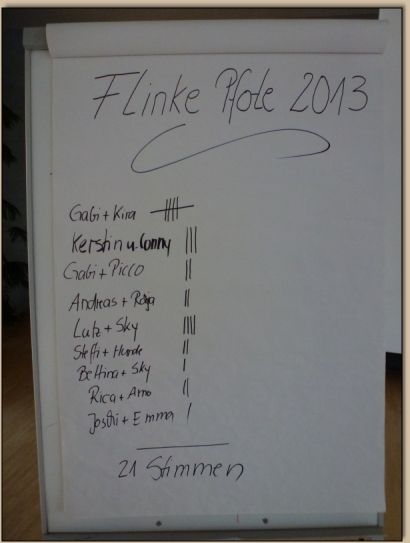 Flinke Pfote 2013
Gabi + Kira 卌
Kerstin u. Conny |||
Gabi + Picco ||
Andreas + Ronja ||
Lutz + Sky ||||
Steffi + Hunde ||
Bettina + Sky |
Rica + Arno ||
+ Emma |
21 Stimmen